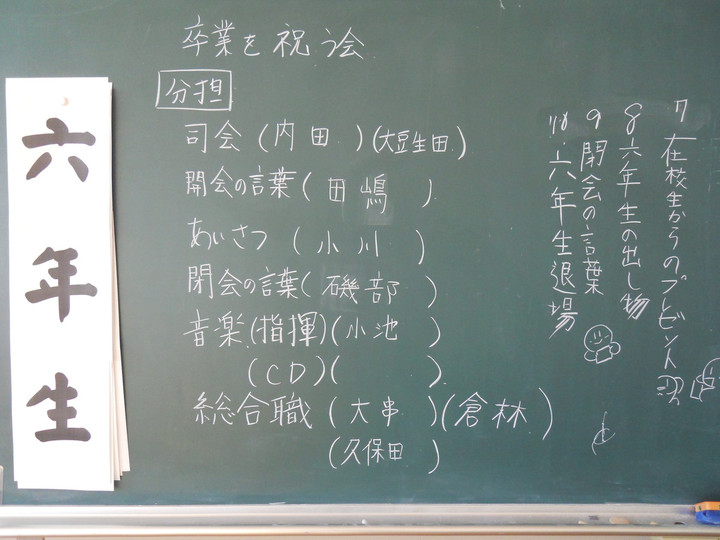 六年生
卒業を祝う会
分担
司会(内田)(大豆生田)
開会の言葉(田嶋)
あいさつ(小川)
閉会の言葉(磯部)
音楽(指揮)(小池)
(CD)( )
総合職(大串)(倉林)
(久保田)
7 在校生からのプレゼント
8 六年生の出し物
9 閉会の言葉
10.六年生退場